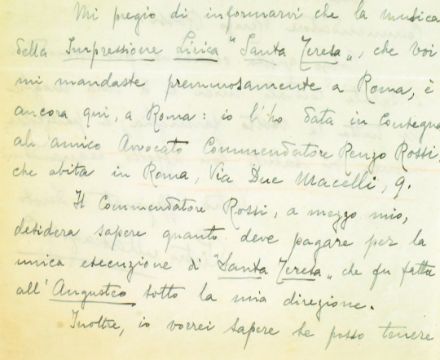 Mi pregio di informarvi che la musica
della Impressione Lirica "Santa Teresa", che voi
mi mandaste premurosamente a Roma, è
ancora qui, a Roma: io l'ho data in consegna
all'amico Avvocato Commendatore Renzo Rossi,
che abita in Roma, Via Due Macelli, 9.
Il Commendatore Rossi, a mezzo mio,
desidera sapere quanto deve pagare per la
unica esecuzione di "Santa Teresa" che fu fatta
all'Augusteo sotto la mia direzione.
Inoltre, io vorrei sapere se posso tenere